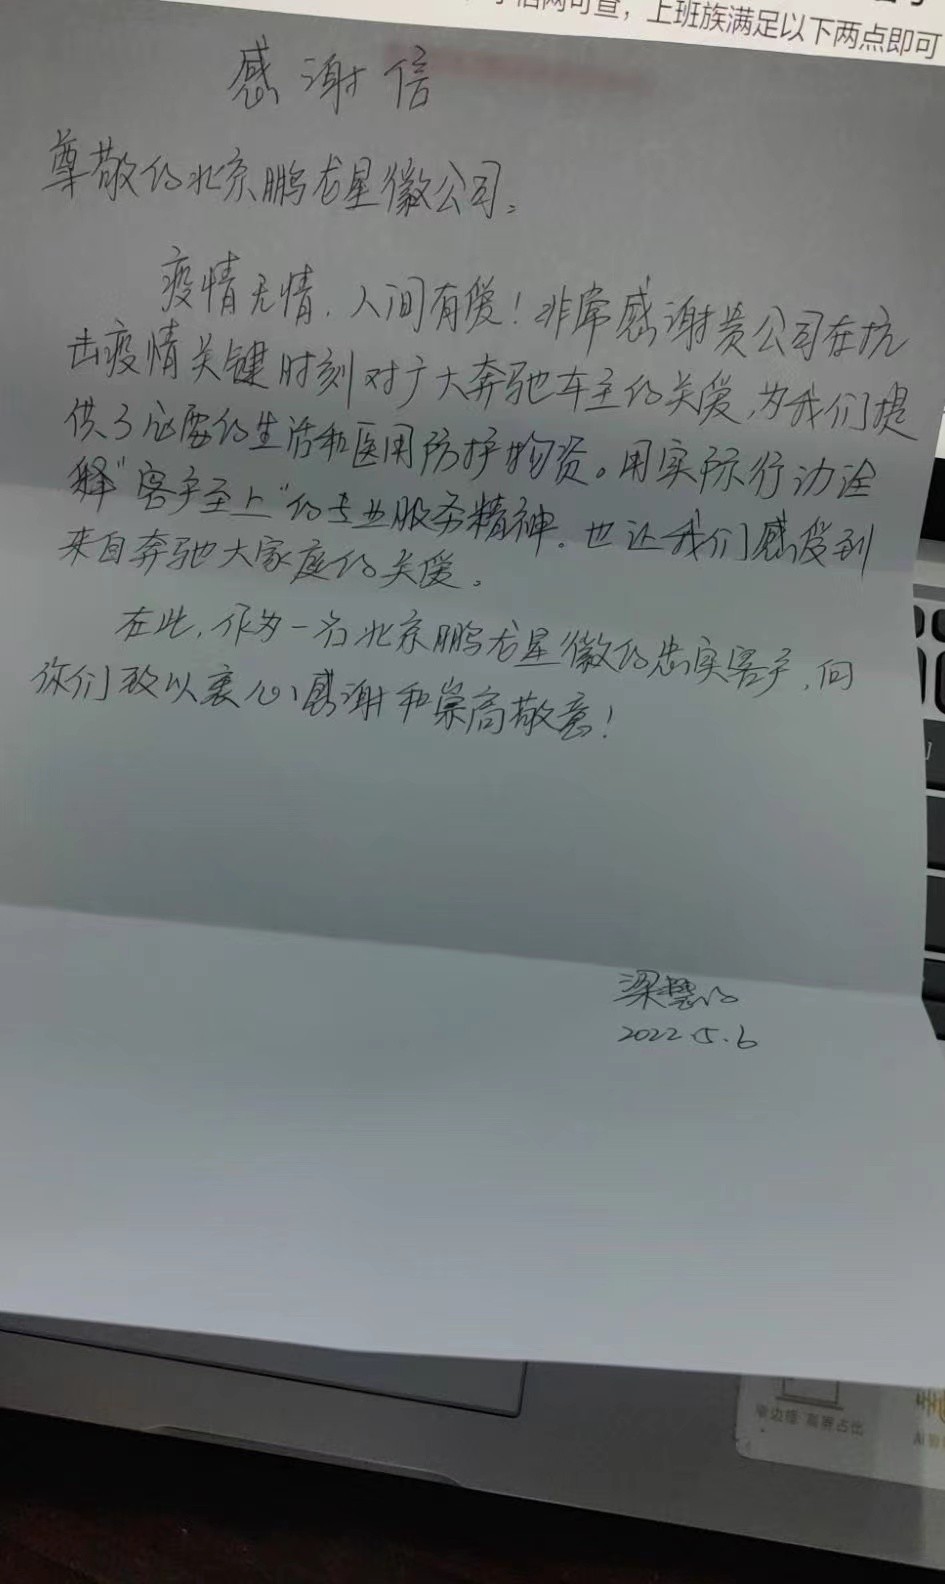 上班族满足以下两点即可
感谢信
尊敬的北京鹏龙星徽公司。
疫情无情，人间有爱！非常感谢贵公司在抗
击疫情关键时刻对广大奔驰车主的关爱，为我们提
供了必要的生活和医用防护物资。用实际行动诠
释“客户至上”的专业服务精神。也让我们感受到
来自奔驰大家庭的关爱。
在此，作为一名北京鹏龙星徽的忠实客户，向
你们致以衷心感谢和崇高敬意！
梁
2022.5.6
窄边框 高屏占比